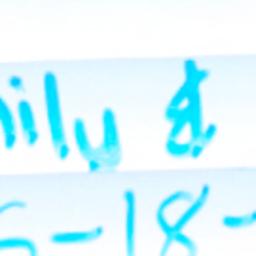 ily &
5-18-